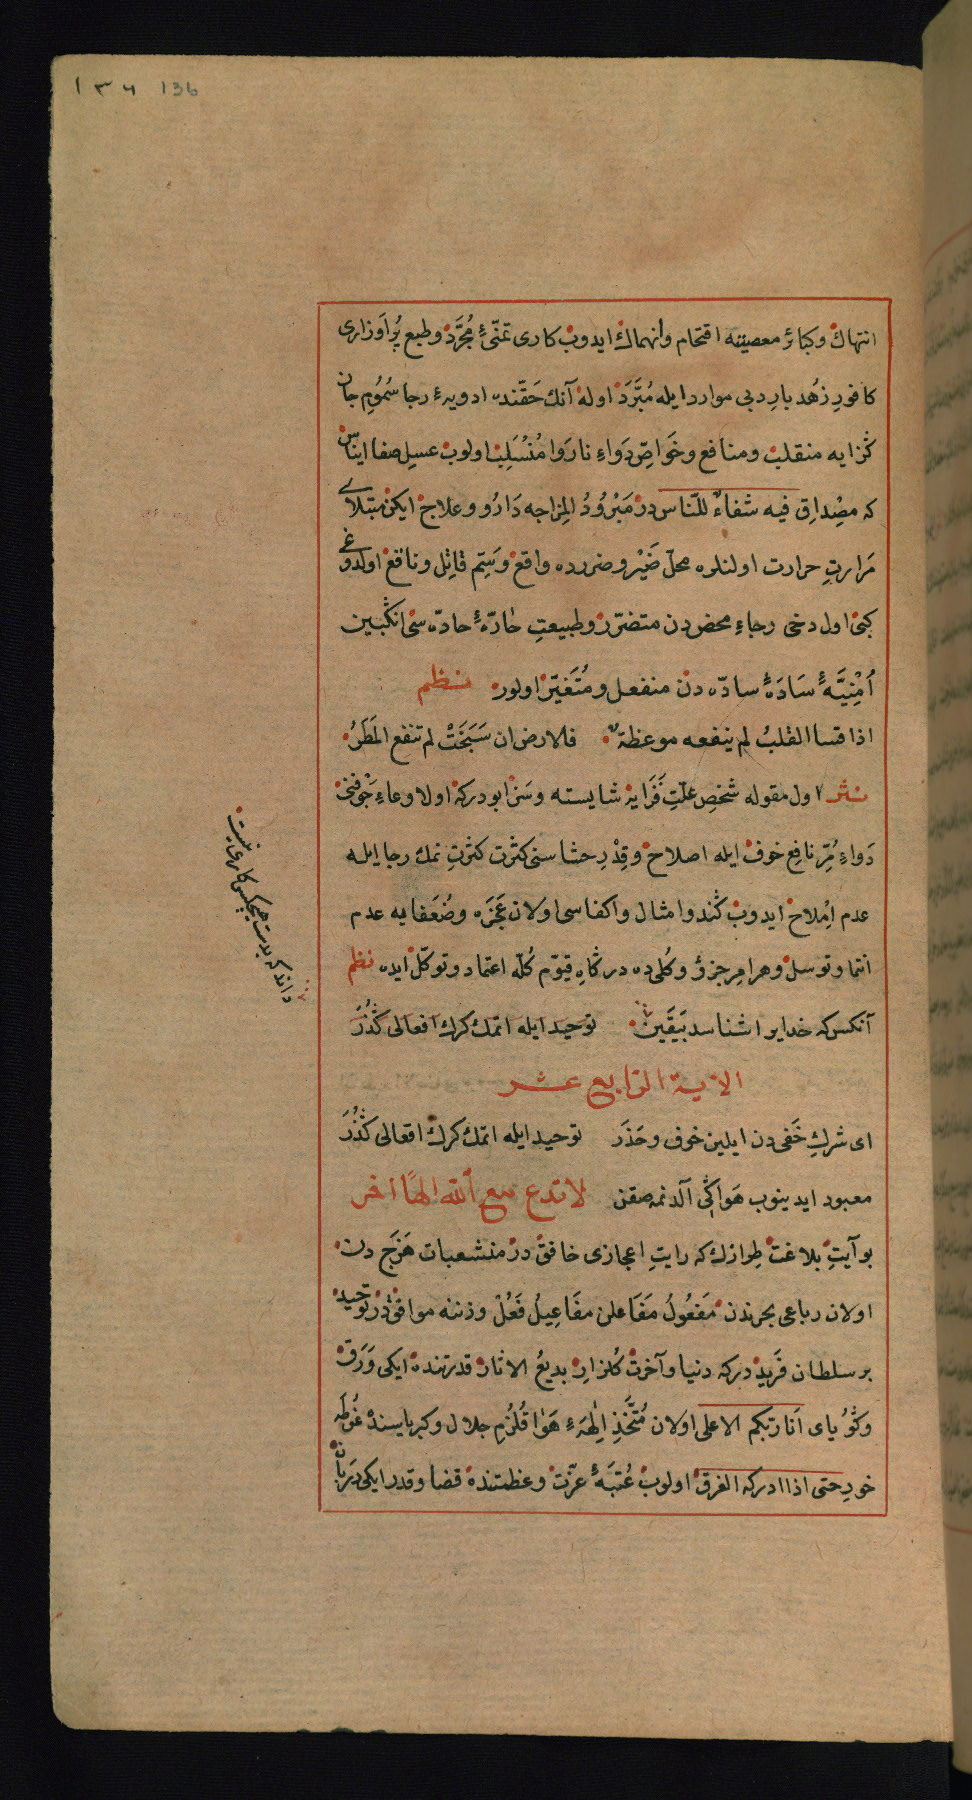 ١٣٦ 136
انتهاك وكبائر معصيته اقتحام وانهماك ايدوب كارى تمنّئ مُجرَّد وطبع پُراَوزارى
كافورِ زُهد باردبى موارد ايله مُبَّرَد اوله آنك حَقّنده ادويهٔ رجا سُمُومِ جان
كَزايه منقلب ومنافع وخَواصِّ دَواءِ نارَوا مُنْسَلِب اولوب عسلِ صفا ايناس
كه مصْداقِ فيه شفاءٌ للنّاس در مَبْرُودُ المِزاجه دَارُو وعلاج ايكن مبتلاى
مَرارتِ حرارت اولنلره محلّ ضَيْر وضررده واقع وسَمِّ قاتِل وناقع اولدوغى
كبى اول دخى رجاءِ محض دن متضرّر وطبيعتِ حَارّهٔ حادّه سى انكَبين
اُمْنِيَّهٔ سَادَهٔ سادّه دن منفعل ومُتَغيّر اولور نظم
اذا قسا القلبُ لم ينفعه موعظةٌ فلارض ان سَبَخَتْ لم تنفع المَطَرُ
نثر اول مقوله شخصِ علّت فَزَايه شايسته وسَزا بودركه اولا وعاءِ جَوفنى
دَواءِ مُرِّ نافِعِ خوف ايله اصلاح وقِدْرِ حشاسنى كثرت كثرتِ نمك رجا ايله
عدم اِمْلاح ايدوب كَندو امثال واكفاسى اولان عَجَزَه وضُعَفايه عدم
انتما وتوسل وهر امرِ جزؤ وكُلى ده درگاهِ قيّوم كُلّه اعتماد وتوكّل ايده نظم
آنكس كه خدايرا شناسد بيَقَين توحيد ايله اتمك كرك افعالى كَذُرَ
داند كه بدست هيچكس كارى نيست
الاية الرابع عشر
اى شركِ خَفى دن ايلين خوف وحَذَر توحيد ايله اتمك كرك افعالى كَذُرَ
معبود ايدينوب هَواكَى آلدنمه صقن لا تدع مع الله الهًا آخر
بو آيتِ بلاغت طِرازك كه رايتِ اعجازى خافق در منشعبات هَزَج دن
اولان رباعى بحرندن مَفعُولُ مَفَاعلن مفَاعِيلُ فَعُلْ وزننه موافق در توحيد
بر سلطان فَريد دركه دنيا وآخرت كُلزارِ بديعُ الاثار قدرتنده ايكى وَرَق
وكَوُياى اَنا ربّكم الاعلى اولان مُتَّخِذِ اِلٰهَهٔ هَوٰا قُلْزُمِ جلال وكبرياسنده غُوطَه
خورِ حتى اذا ادركه الغرق اولوب عُتبَهٔ عزّت وعظمتنده قضا وقدر ايكى دَربان